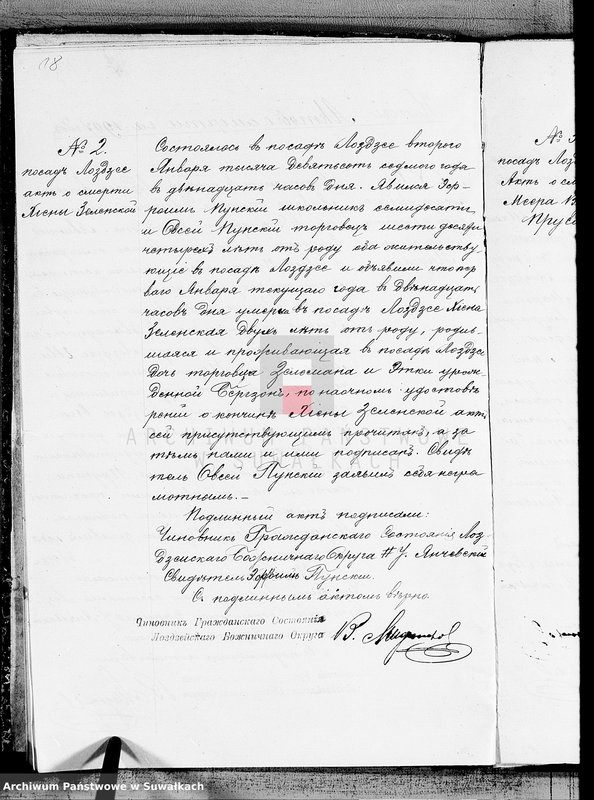 18
№ 2.
посадъ Лоздзее
актъ о смерти
Хiены Зеленской
Состоялось въ посадѣ Лоздзее второго
Января тысяча девятьсотъ седьмого года
въ двѣнадцать часовъ дня. Явился Эф-
роимъ Пунскiй школьникъ семидесяти
и Овсей Пунскiй торговецъ шестидесяти
четырехъ лѣтъ отъ роду оба жительству-
ющiе въ посадѣ Лоздзее и объявили что пер-
ваго Января текущаго года въ двѣнадцать
часовъ дня умерла въ посадѣ Лоздзее Хiена
Зеленская двухъ лѣтъ отъ роду, родив-
шаяся и проживающая въ посадѣ Лоздзее
дочь торговца Зелемана и Этки урож-
денной Бергзонъ, по наочномъ удостовѣ-
ренiи о кончинѣ Хiены Зеленской актъ
сей присутствующимъ прочитанъ, а за-
тѣмъ нами и ими подписанъ. Свидѣ-
тель Овсей Пунскiй заявилъ себя негра-
мотнымъ.–
Подлинный актъ подписали:
Чиновникъ Гражданскаго Состоянiя Лоз-
дзейскаго Божничнаго Округа Янчевскiй
Свидѣтель Эфроимъ Пунскiй.
Съ подлиннымъ актомъ вѣрно
Чиновникъ Гражданскаго Состоянiя
Лоздзейскаго Божничнаго Округа
№ 3
посадъ Лоз
Актъ о см
Меера
Прус
ARCHIWUM PAŃSTWOWE
W SUWAŁKACH
Archiwum Państwowe w Suwałkach